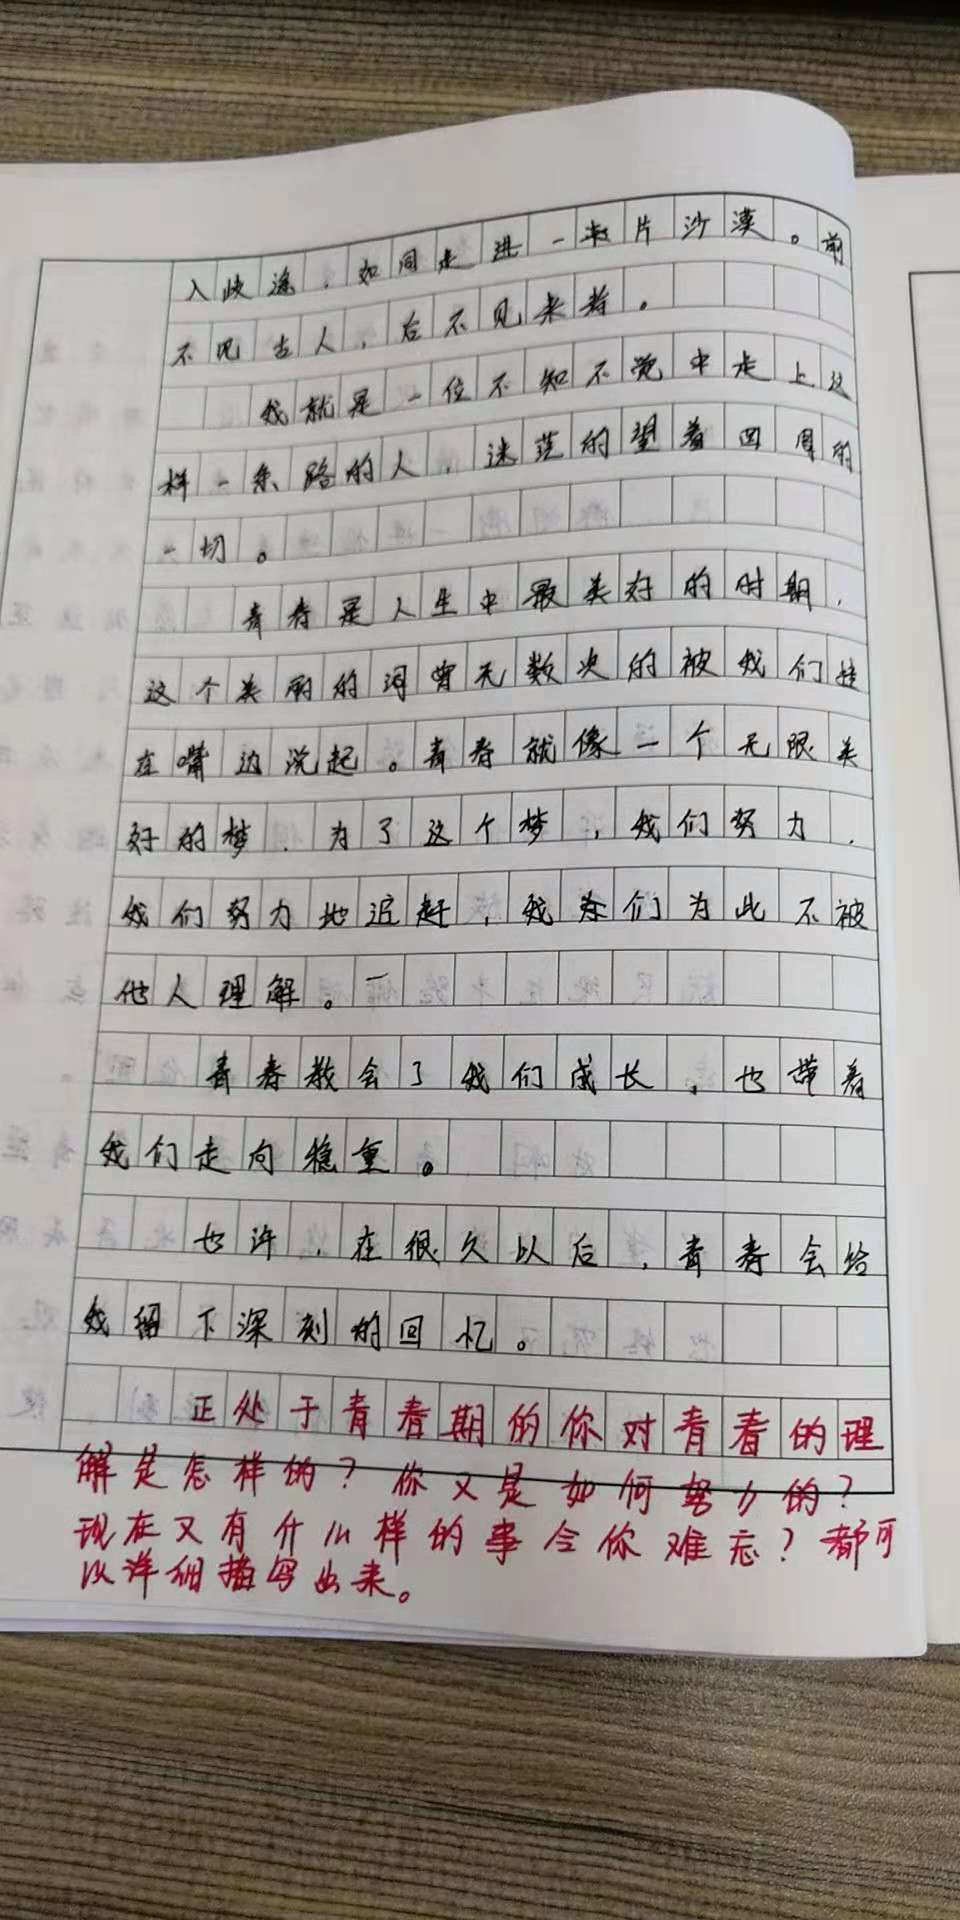 入歧途，如同走进一片沙漠。前
不见古人，后不见来者。
我就是一位不知不觉中走上这
样一条路的人，迷茫的望着四周的
一切。
青春是人生中最美好的时期，
这个美丽的词曾无数次的被我们挂
在嘴边说起。青春就像一个无限美
好的梦，为了这个梦，我们努力，
我们努力地追赶，我们为此不被
他人理解。
青春教会了我们成长，也带着
我们走向稳重。
也许，在很久以后，青春会给
我留下深刻的回忆。
正处于青春期的你对青春的理
解是怎样的？你又是如何努力的？
现在又有什么样的事令你难忘？都可
以详细描写出来。